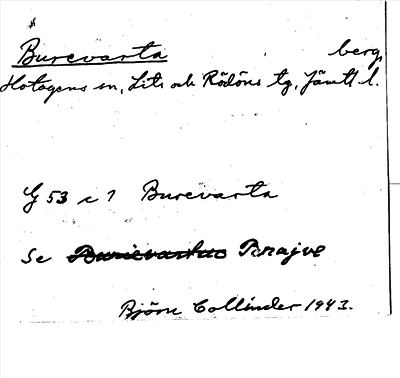 Burevarta berg,
Hotagens sn, Lits och Rödöns tg, Jämtl. l.
G 53 c 1 Burevarta
Se
Björn Collinder 1943.